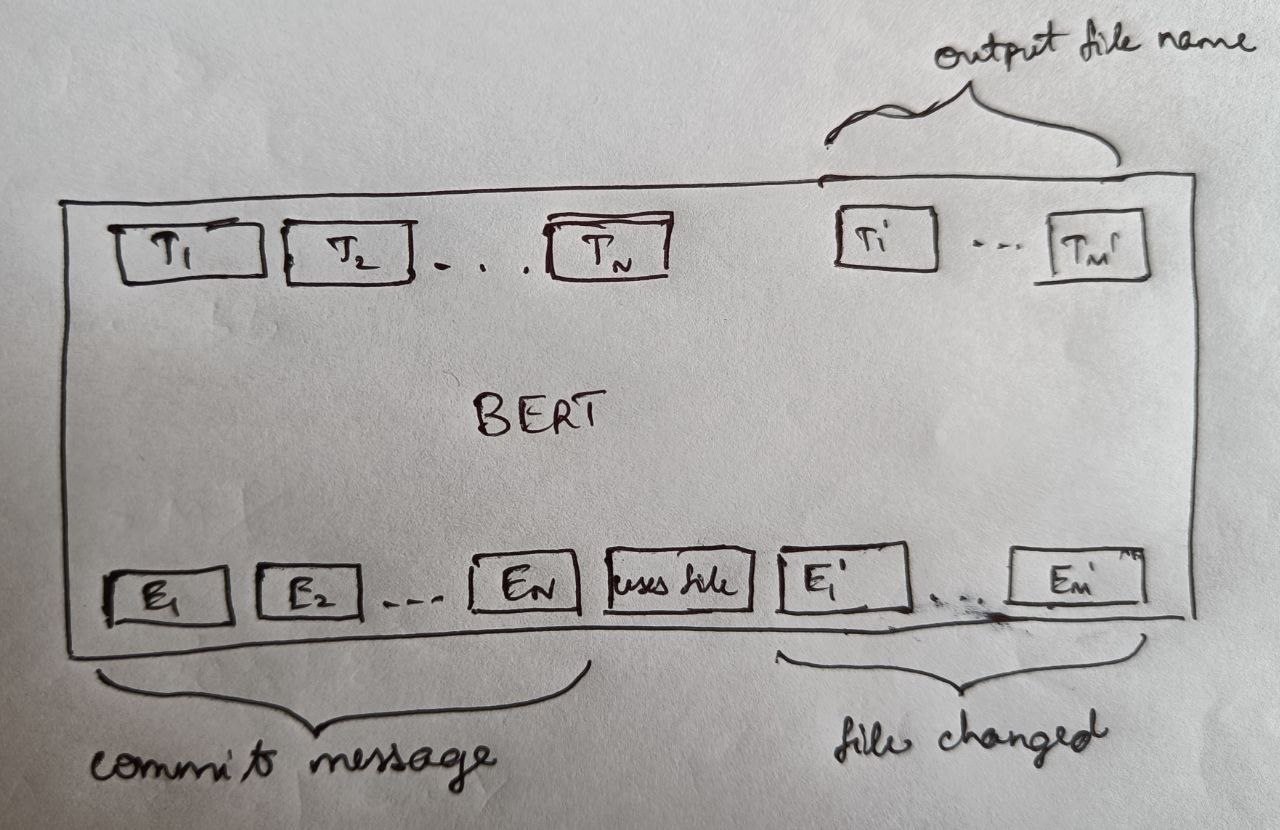 output file name
T1 T2 . . . TN T1' --- TM'
BERT
E1 E2 ---- EN uses file E1' ... EM'
commit message file changed